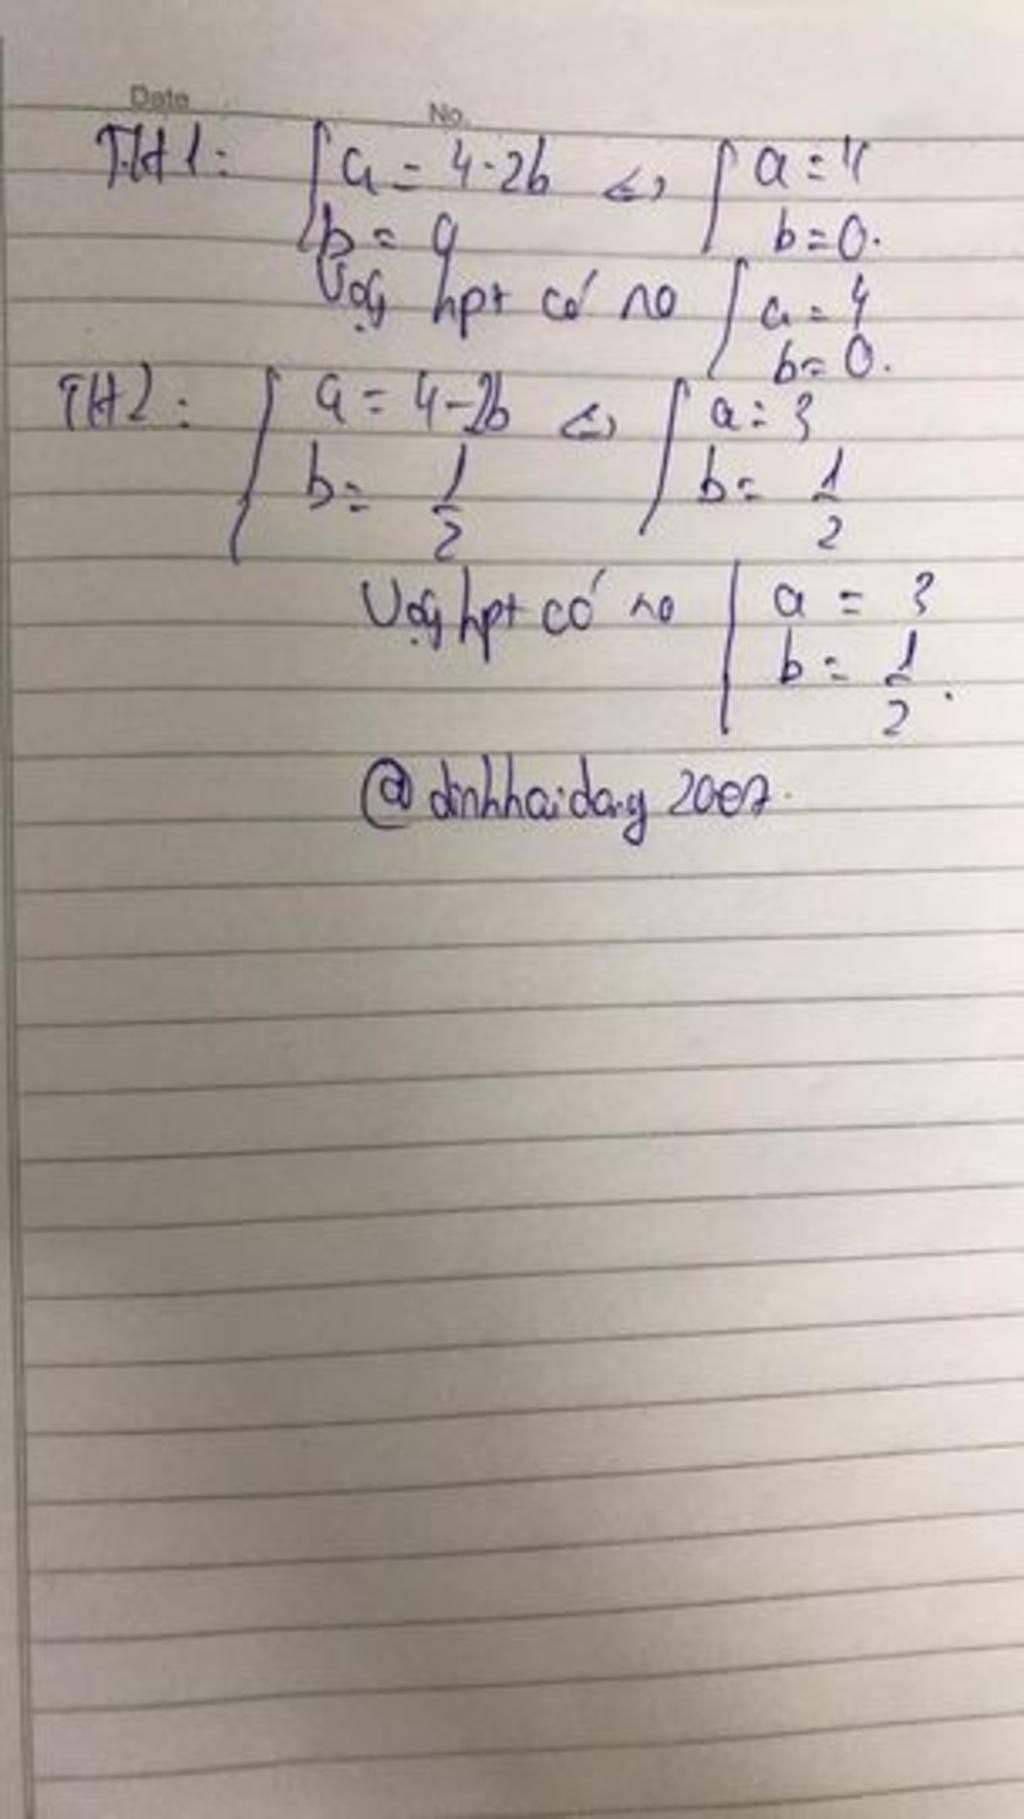 Date No.
TH1: { a = 4-2b <=> { a = 4
b = 0 b = 0.
Vậy hpt có no { a = 4
b = 0.
TH2: { a = 4-2b <=> { a = 3
b = 1/2 b = 1/2
Vậy hpt có no { a = 3
b = 1/2.
@dinhhaidang 2007.